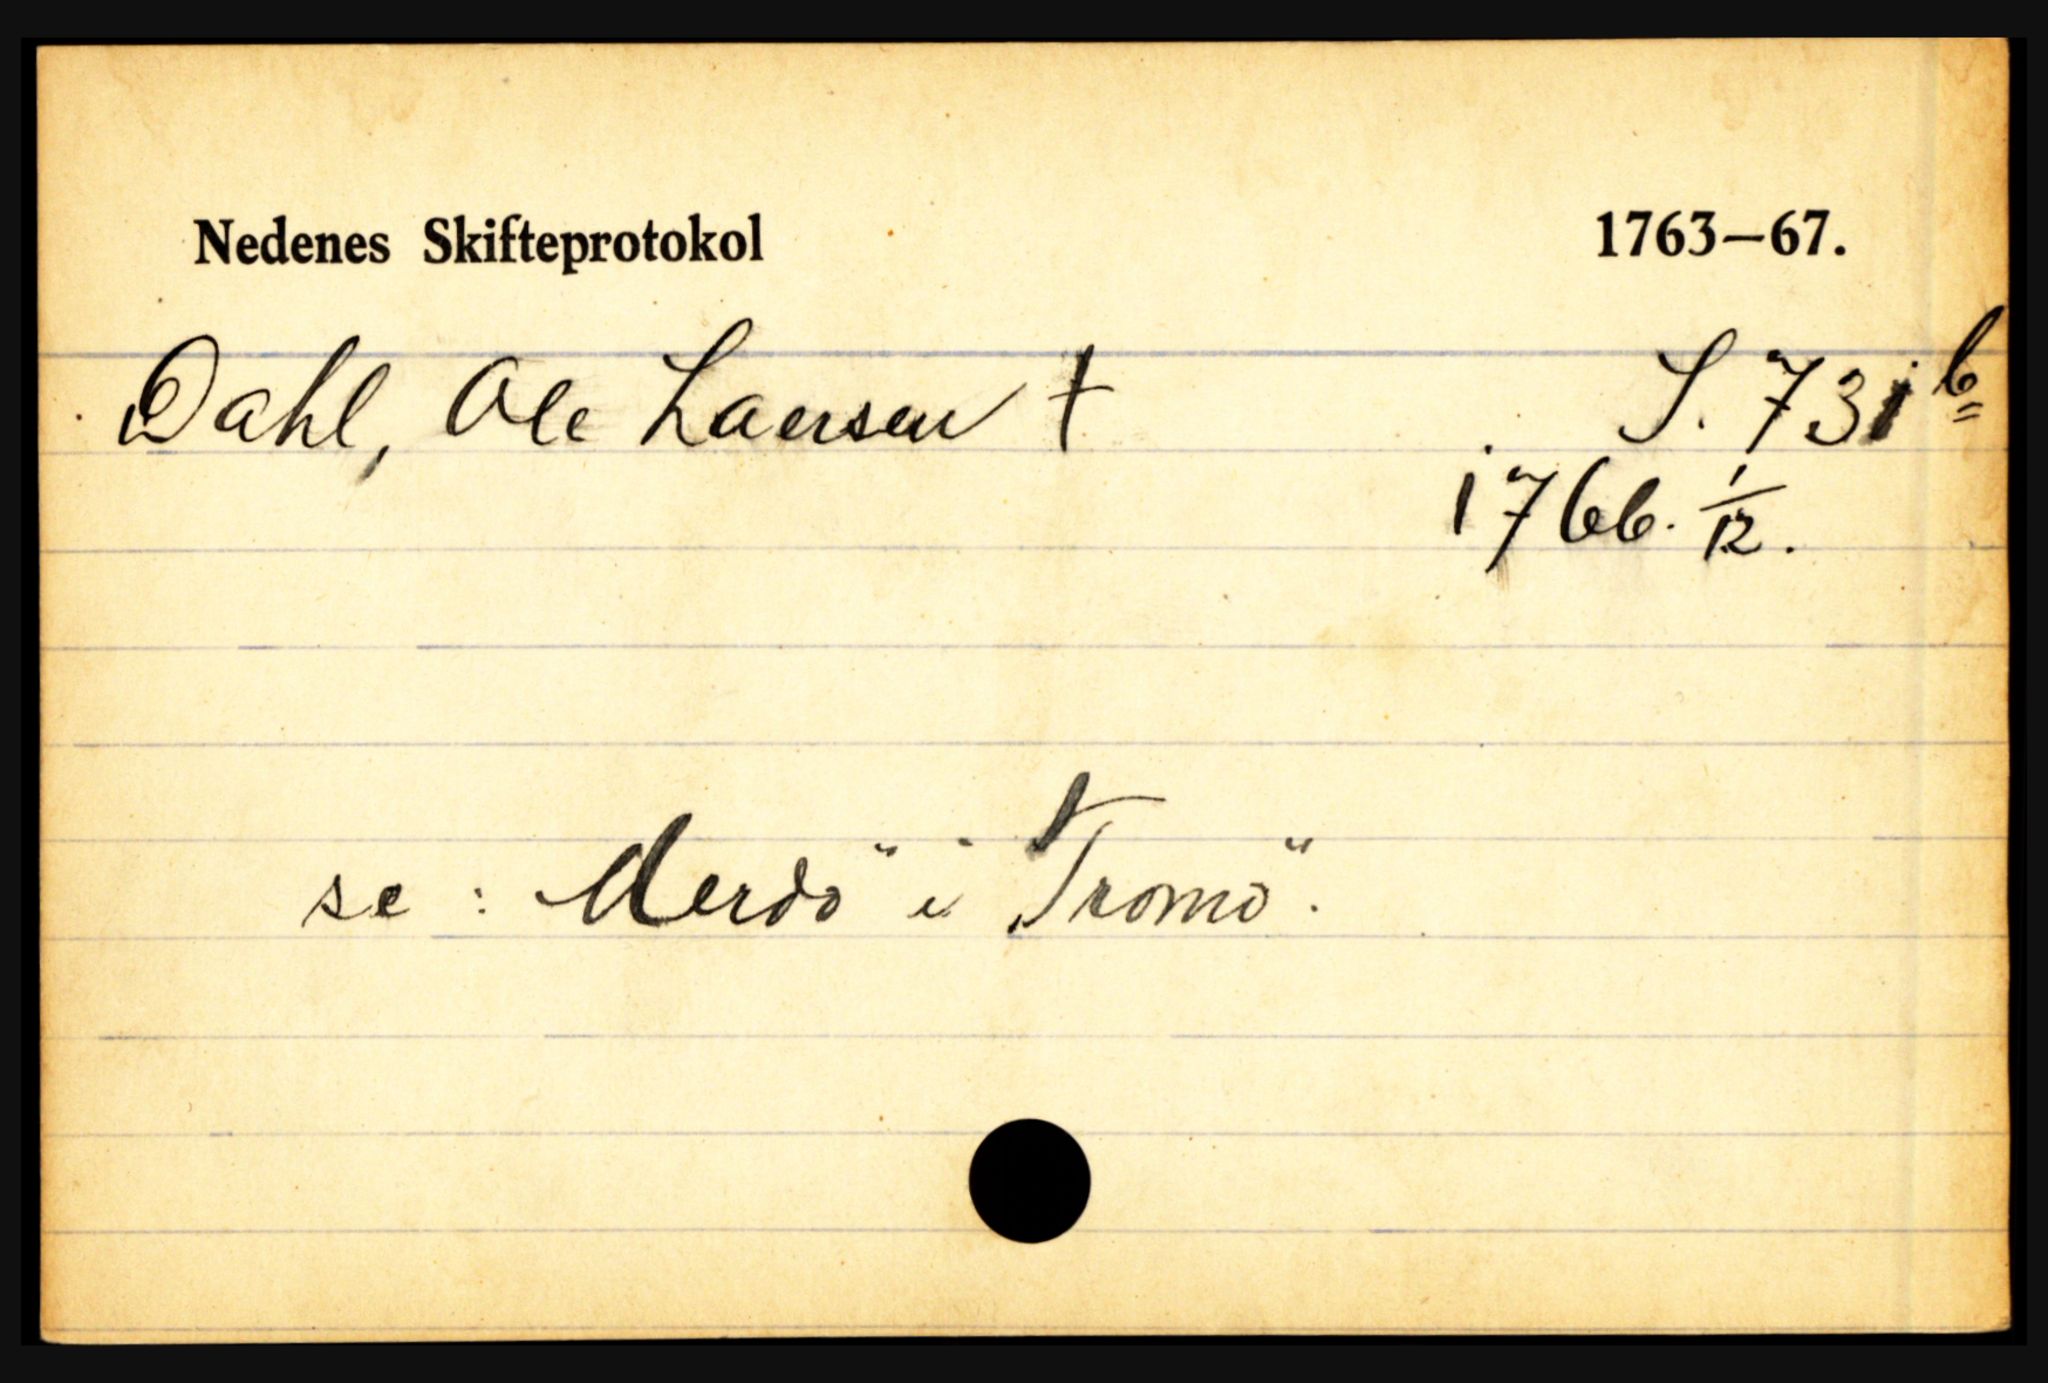 Nedenes Skifteprotokol 1763—67.
Dahl, Ole Laersen † S. 731 b
1766. 1/12.
se: Merdö i Tromö.